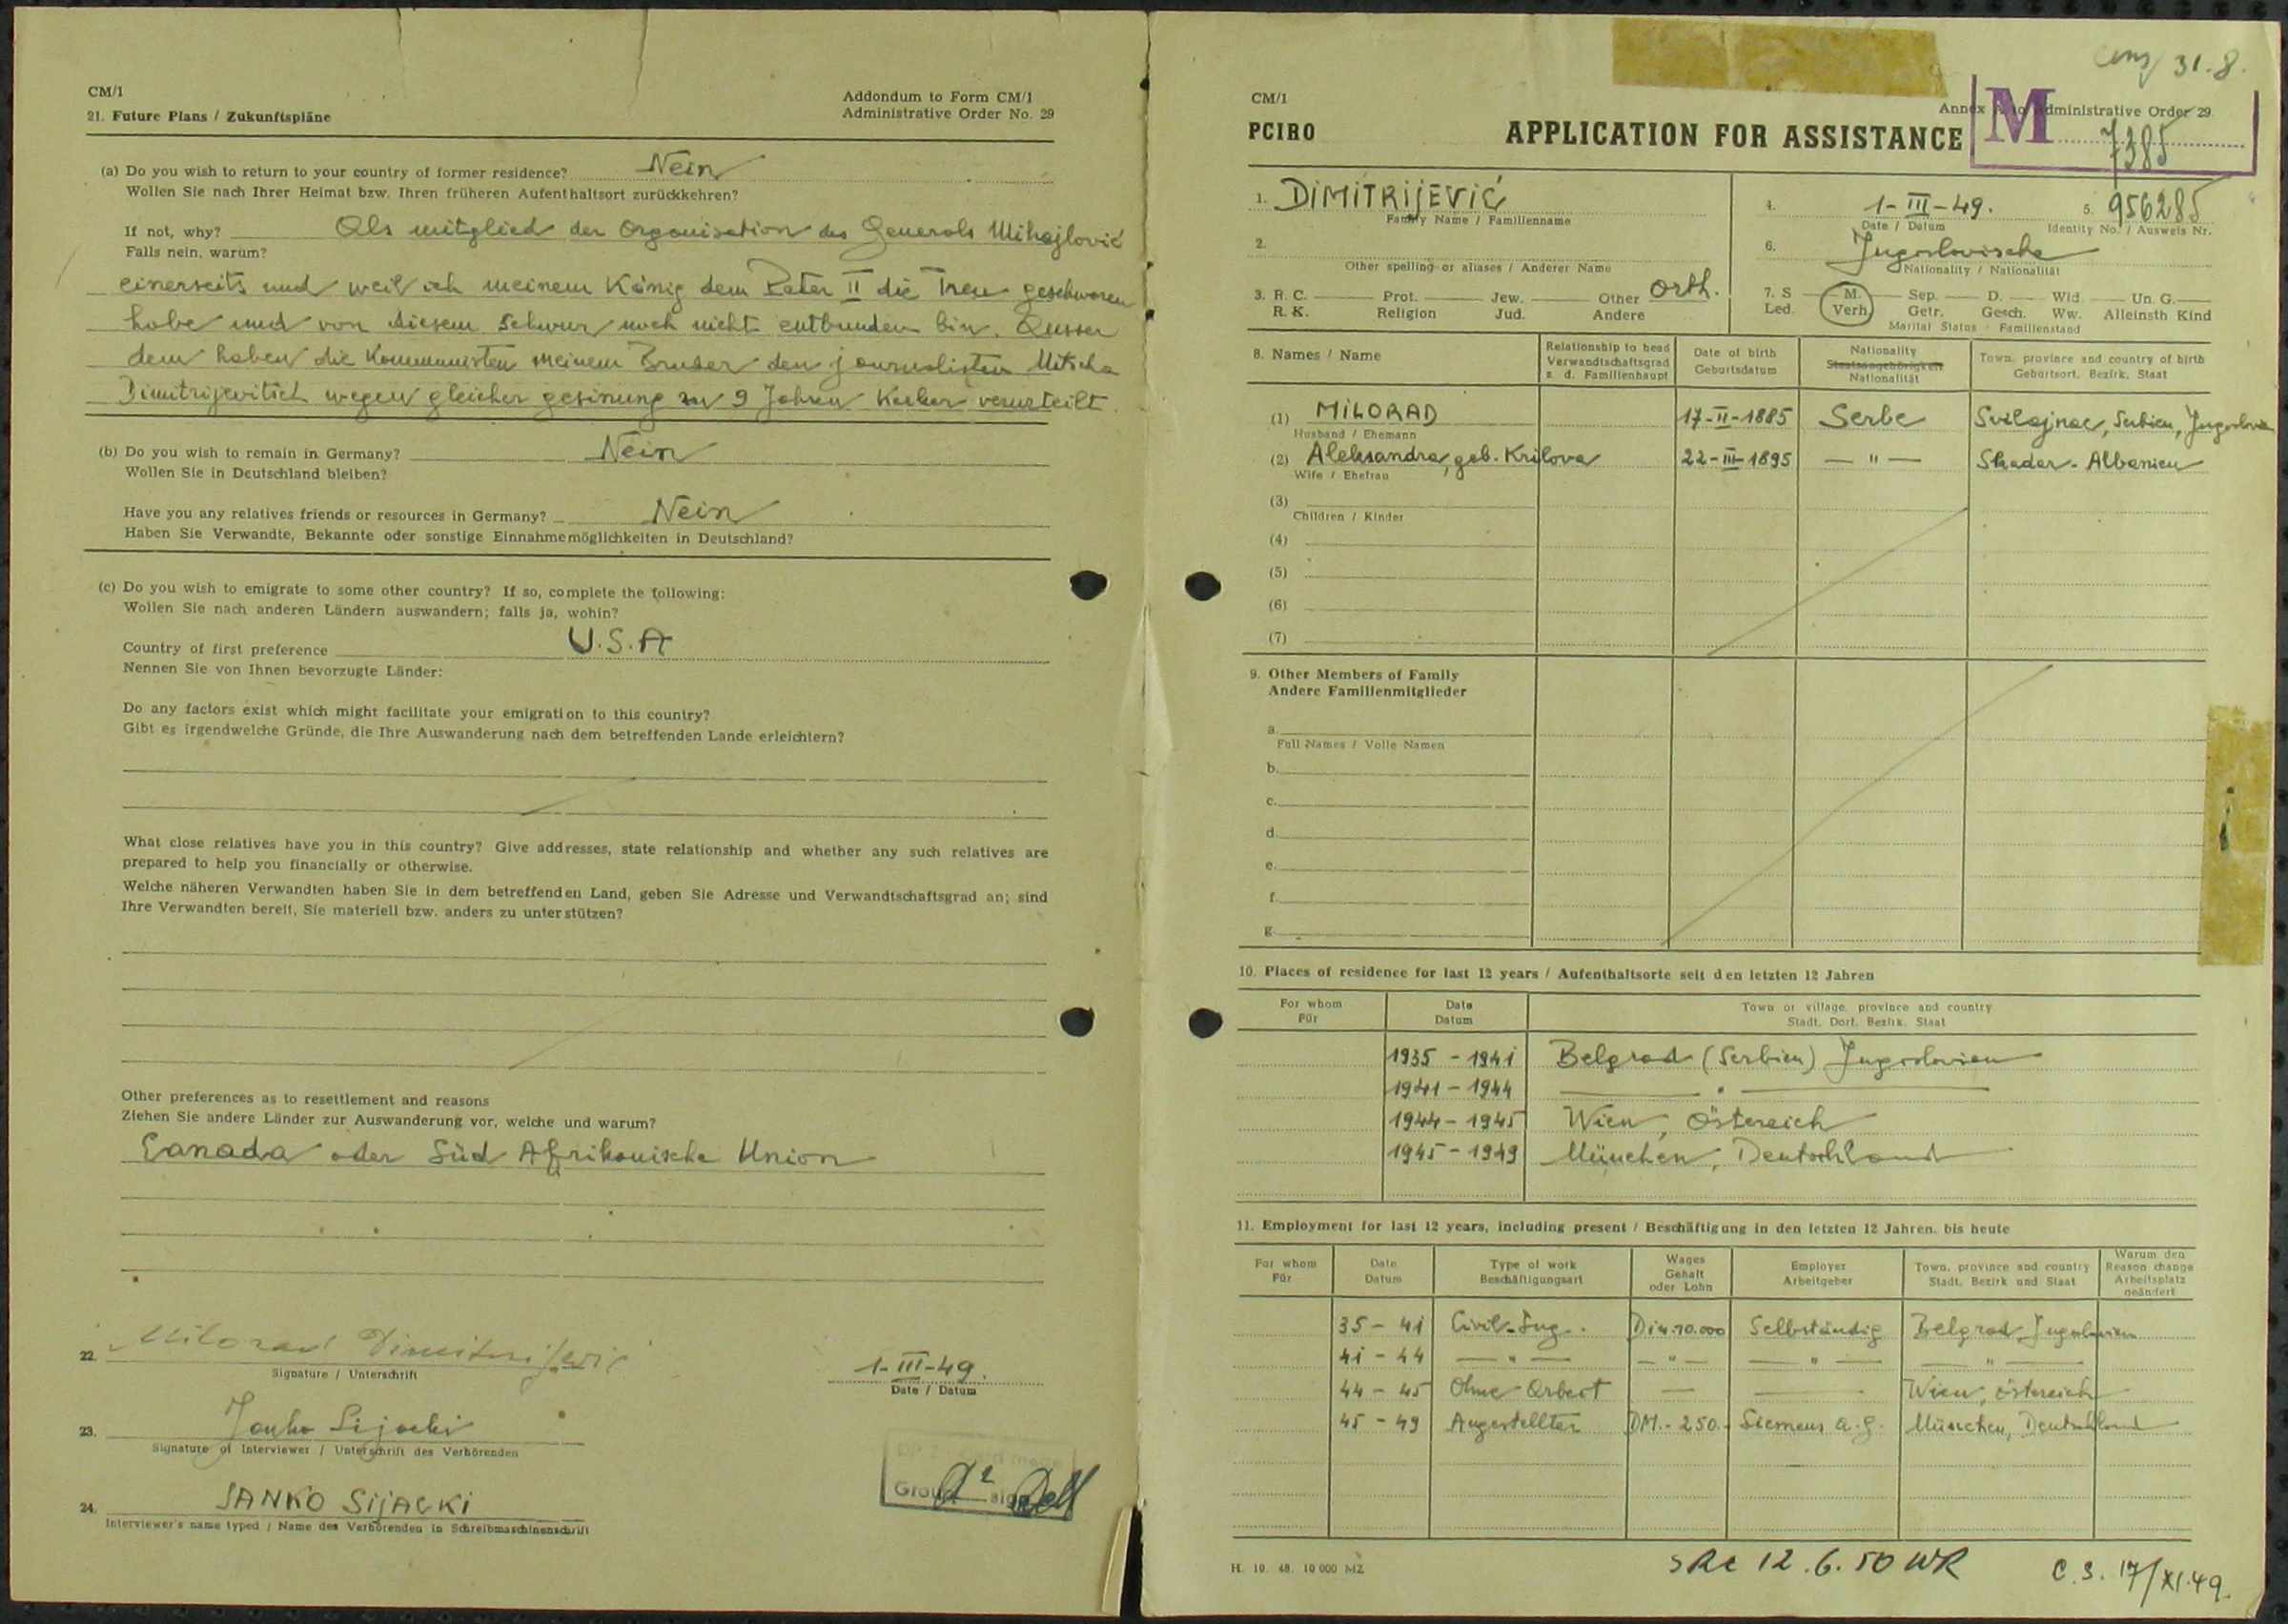 CM/1
Addondum to Form CM/1
21. Future Plans / Zukunftspläne
Administrative Order No. 29
(a) Do you wish to return to your country of former residence? Nein
Wollen Sie nach Ihrer Heimat bzw. Ihren früheren Aufenthaltsort zurückkehren?
If not, why? Als mitglied der Organisation des Generals Mihajlović
Falls nein, warum?
einerseits und weil ich meinem König dem Peter II die Treu geschworen
habe und von diesem Schwur noch nicht entbunden bin. Ausser
dem haben die Kommunisten meinem Bruder den journalisten Mitscha
Dimitrijevitsch wegen gleicher gesinung zu 9 Jahren Kerker verurteilt.
(b) Do you wish to remain in Germany? Nein
Wollen Sie in Deutschland bleiben?
Have you any relatives friends or resources in Germany? Nein
Haben Sie Verwandte, Bekannte oder sonstige Einnahmemöglichkeiten in Deutschland?
(c) Do you wish to emigrate to some other country? If so, complete the following:
Wollen Sie nach anderen Ländern auswandern; falls ja, wohin?
Country of first preference U.S.A
Nennen Sie von Ihnen bevorzugte Länder:
Do any factors exist which might facilitate your emigration to this country?
Gibt es irgendwelche Gründe, die Ihre Auswanderung nach dem betreffenden Lande erleichtern?
What close relatives have you in this country? Give addresses, state relationship and whether any such relatives are
prepared to help you financially or otherwise.
Welche näheren Verwandten haben Sie in dem betreffenden Land, geben Sie Adresse und Verwandtschaftsgrad an; sind
Ihre Verwandten bereit, Sie materiell bzw. anders zu unterstützen?
Other preferences as to resettlement and reasons
Ziehen Sie andere Länder zur Auswanderung vor, welche und warum?
Canada oder Süd Afrikanische Union
22. Milorad Dimitrijević
Signature / Unterschrift
1-III-49.
Date / Datum
23. Janko Sijacki
Signature of Interviewer / Unterschrift des Verhörenden
24. JANKO SIJACKI
Interviewer's name typed / Name des Verhörenden in Schreibmaschinenschrift
Group
31.8.
CM/1
Annex A to Administrative Order 29
PCIRO
APPLICATION FOR ASSISTANCE
M 7385
1. DIMITRIJEVIĆ
Family Name / Familienname
4. 1-III-49.
Date / Datum
5. 956285
Identity No. / Ausweis Nr.
2.
Other spelling or aliases / Anderer Name
6. Jugoslavische
Nationality / Nationalität
3. R. C. Prot. Jew. Other Orth.
R. K. Religion Jud. Andere
7. S M. Sep. D. Wid. Un. G.
Led. Verh. Getr. Gesch. Ww. Alleinsth Kind
Marital Status / Familienstand
8. Names / Name
Relationship to head
Verwandtschaftsgrad
z. d. Familienhaupt
Date of birth
Geburtsdatum
Nationality
Staatsangehörigkeit
Nationalität
Town, province and country of birth
Geburtsort, Bezirk, Staat
(1) MILORAD 17-II-1885 Serbe Svilajnac, Serbien, Jugoslavien
Husband / Ehemann
(2) Aleksandra, geb. Krilova 22-III-1895 — " — Skadar - Albanien
Wife / Ehefrau
(3)
Children / Kinder
(4)
(5)
(6)
(7)
9. Other Members of Family
Andere Familienmitglieder
a.
Full Names / Volle Namen
b.
c.
d.
e.
f.
g.
10. Places of residence for last 12 years / Aufenthaltsorte seit den letzten 12 Jahren
For whom
Für
Date
Datum
Town or village, province and country
Stadt, Dorf, Bezirk, Staat
1935 - 1941 Belgrad (Serbien) Jugoslavien
1941 - 1944 — " —
1944 - 1945 Wien, Östereich
1945 - 1949 München, Deutschland
11. Employment for last 12 years, including present / Beschäftigung in den letzten 12 Jahren, bis heute
For whom
Für
Date
Datum
Type of work
Beschäftigungsart
Wages
Gehalt
oder Lohn
Employer
Arbeitgeber
Town, province and country
Stadt, Bezirk und Staat
Warum den
Reason change
Arbeitsplatz
geändert
35 - 41 Civil-Ing. Din.10.000 Selbständig Belgrad, Jugoslavien
41 - 44 — " — — " — — " — — " —
44 - 45 Ohne Arbeit — — Wien, Östereich
45 - 49 Angestellter DM.-250.- Siemens A.G. München, Deutschland
H. 10. 48. 10 000 MZ
12.6.50 WR
C.S. 17/XI.49.